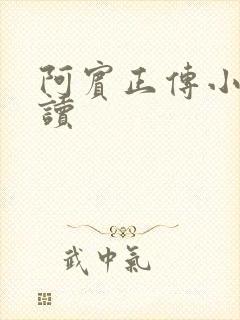 阿賓正傳小
讀
武中氣